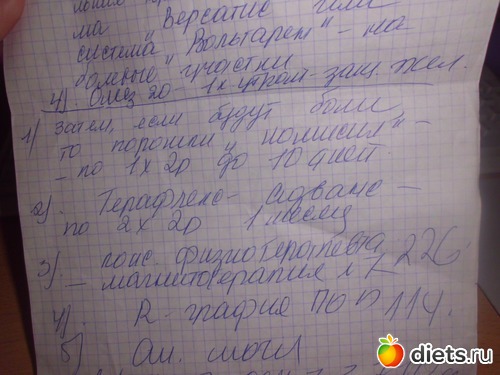 ма "Версатис" или
система "Вольтарен" - на
больные участки
4). Омез 20 - 1х утром - защ. жел.
1) Затем, если будут боли
то порошки "нимисил" -
- по 1х2р до 10 дней
2). Терафлекс - Адванс -
по 2х2р 1 месяц
3) конс. физиотерапевта
- магнитотерапия 226
4). R. графия ПОП 114.
5) Ан. мочи
diets.ru